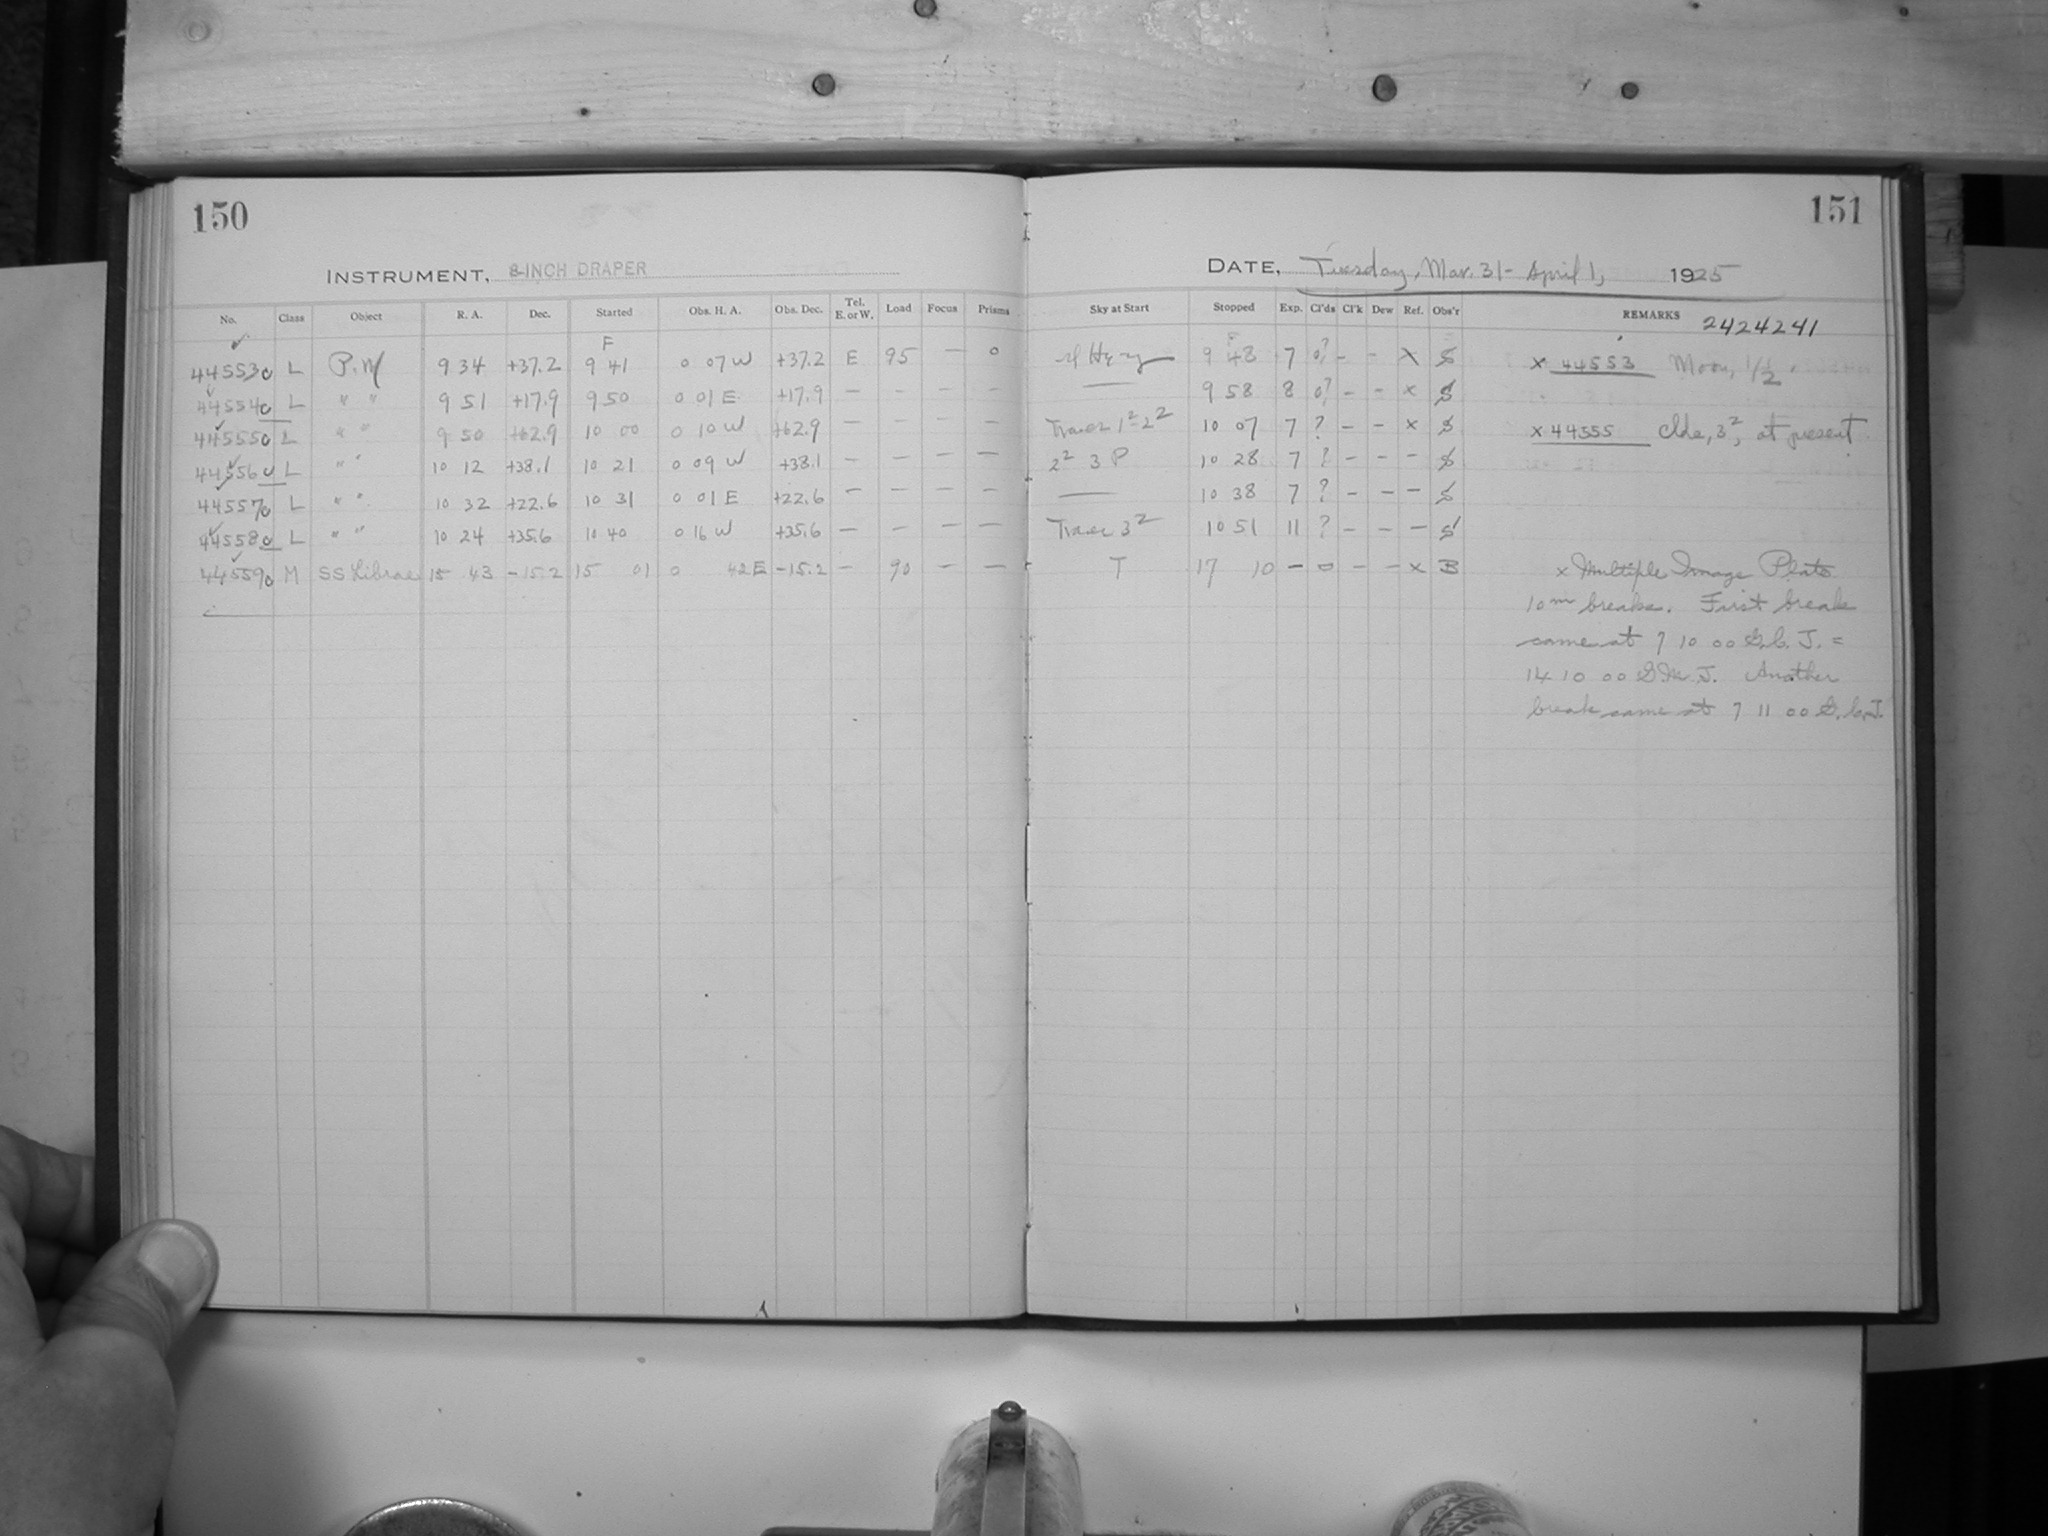 150
INSTRUMENT, 8-INCH DRAPER
No. Class Object R. A. Dec. Started Obs. H. A. Obs. Dec. Tel. E. or W. Load Focus Prisms
F
44553 L P.M 9 34 +37.2 9 41 0 07 W +37.2 E 95 — 0
44554 L " " 9 51 +17.9 9 50 0 01 E +17.9 — — — —
44555 L " " 9 50 +62.9 10 00 0 10 W +62.9 — — — —
44556 L " " 10 12 +38.1 10 21 0 09 W +38.1 — — — —
44557 L " " 10 32 +22.6 10 31 0 01 E +22.6 — — — —
44558 L " " 10 24 +35.6 10 40 0 16 W +35.6 — — — —
44559 M SS Librae 15 43 -15.2 15 01 0 42 E -15.2 — 90 — —
151
DATE, Tuesday, Mar. 31 - April 1, 1925
Sky at Start Stopped Exp. Cl'ds Cl'k Dew Ref. Obs'r REMARKS 2424241
9 48 7 0? - - x S x 44553 Moon, 1/2.
— 9 58 8 0? - - x S
1² 2² 10 07 7 ? - - x S x 44555 Clds, 3², at present
2² 3 P 10 28 7 ? - - - S
— 10 38 7 ? - - - S
3² 10 51 11 ? - - - S
T 17 10 - 0 - - x B x Multiple Image Plate
10ᵐ breaks. First break
came at 7 10 00 J. =
14 10 00 G.M.J. Another
break came at 7 11 00